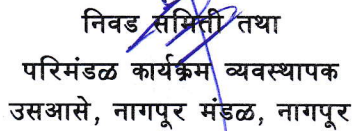 निवड समिती तथा
परिमंडळ कार्यक्रम व्यवस्थापक
उसआसे, नागपूर मंडळ, नागपूर